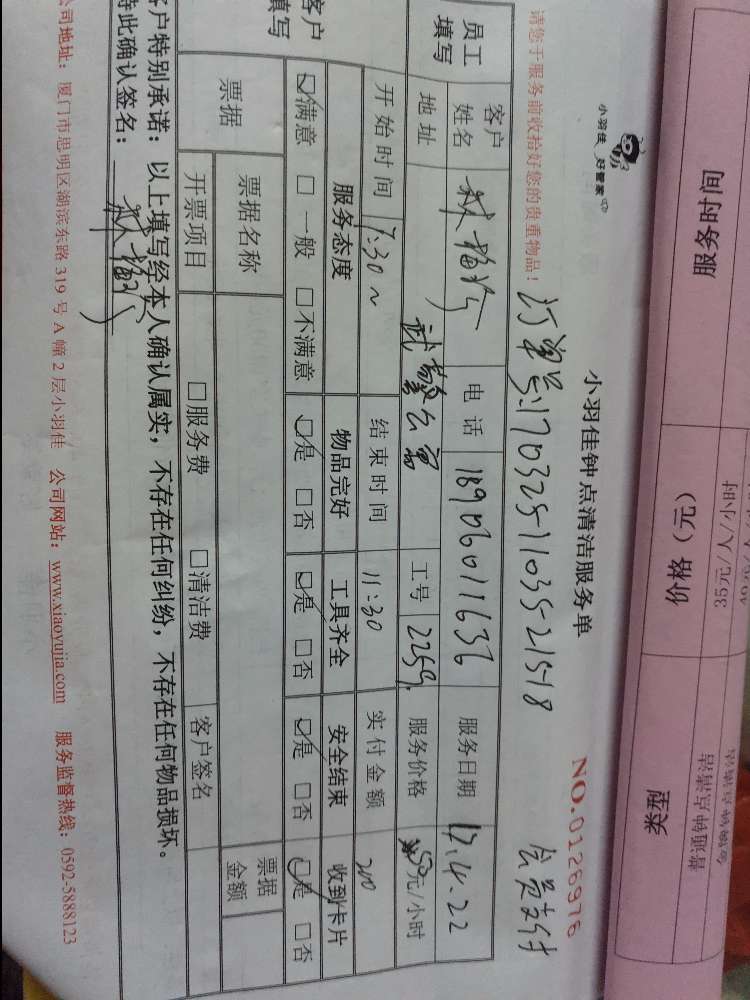 服务时间
价格（元）
类型
35元/人/小时
普通钟点清洁
小羽佳 好管家
小羽佳钟点清洁服务单
NO.0126976
请您于服务前收拾好您的贵重物品！
订单号:1703251103521518
会员支付
员工填写
客户姓名
电话 18906011636
服务日期 17.4.22
地址 武警公寓
工号 2259
服务价格 50元/小时
开始时间 7:30~
结束时间 11:30
实付金额 200
客户填写
服务态度 物品完好 工具齐全 安全结束 收到卡片
☑满意 □一般 □不满意 ☑是 □否 ☑是 □否 ☑是 □否 ☑是 □否
票据
票据名称
票据金额
开票项目 □服务费 □清洁费 客户签名
客户特别承诺：以上填写经本人确认属实，不存在任何纠纷，不存在任何物品损坏。
特此确认签名：
公司地址：厦门市思明区湖滨东路 319 号 A 幢 2 层小羽佳 公司网站：www.xiaoyujia.com 服务监督热线：0592-5888123